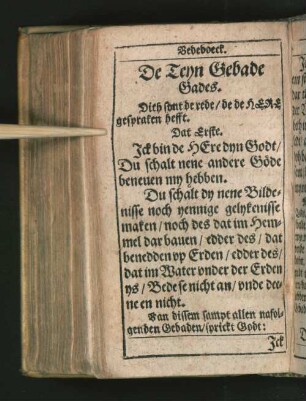 Bedeboeck.
De Teyn Gebade
Gades.
Dith synt de rede / de de HERE
gespraken hefft.
Dat Erste.
Ick bin de HEre dyn Godt /
Du schalt nene andere Göde
beneuen my hebben.
Du schalt dy nene Bilde-
nisse noch yennige gelykenisse
maken / noch des dat im Hem-
mel dar bauen / edder des / dat
benedden vp Erden / edder des /
dat im Water vnder der Erden
ys / Bede se nicht an / vnde dee-
ne en nicht.
Van dissem sampt allen nafol-
genden Gebaden / sprickt Godt:
Ick